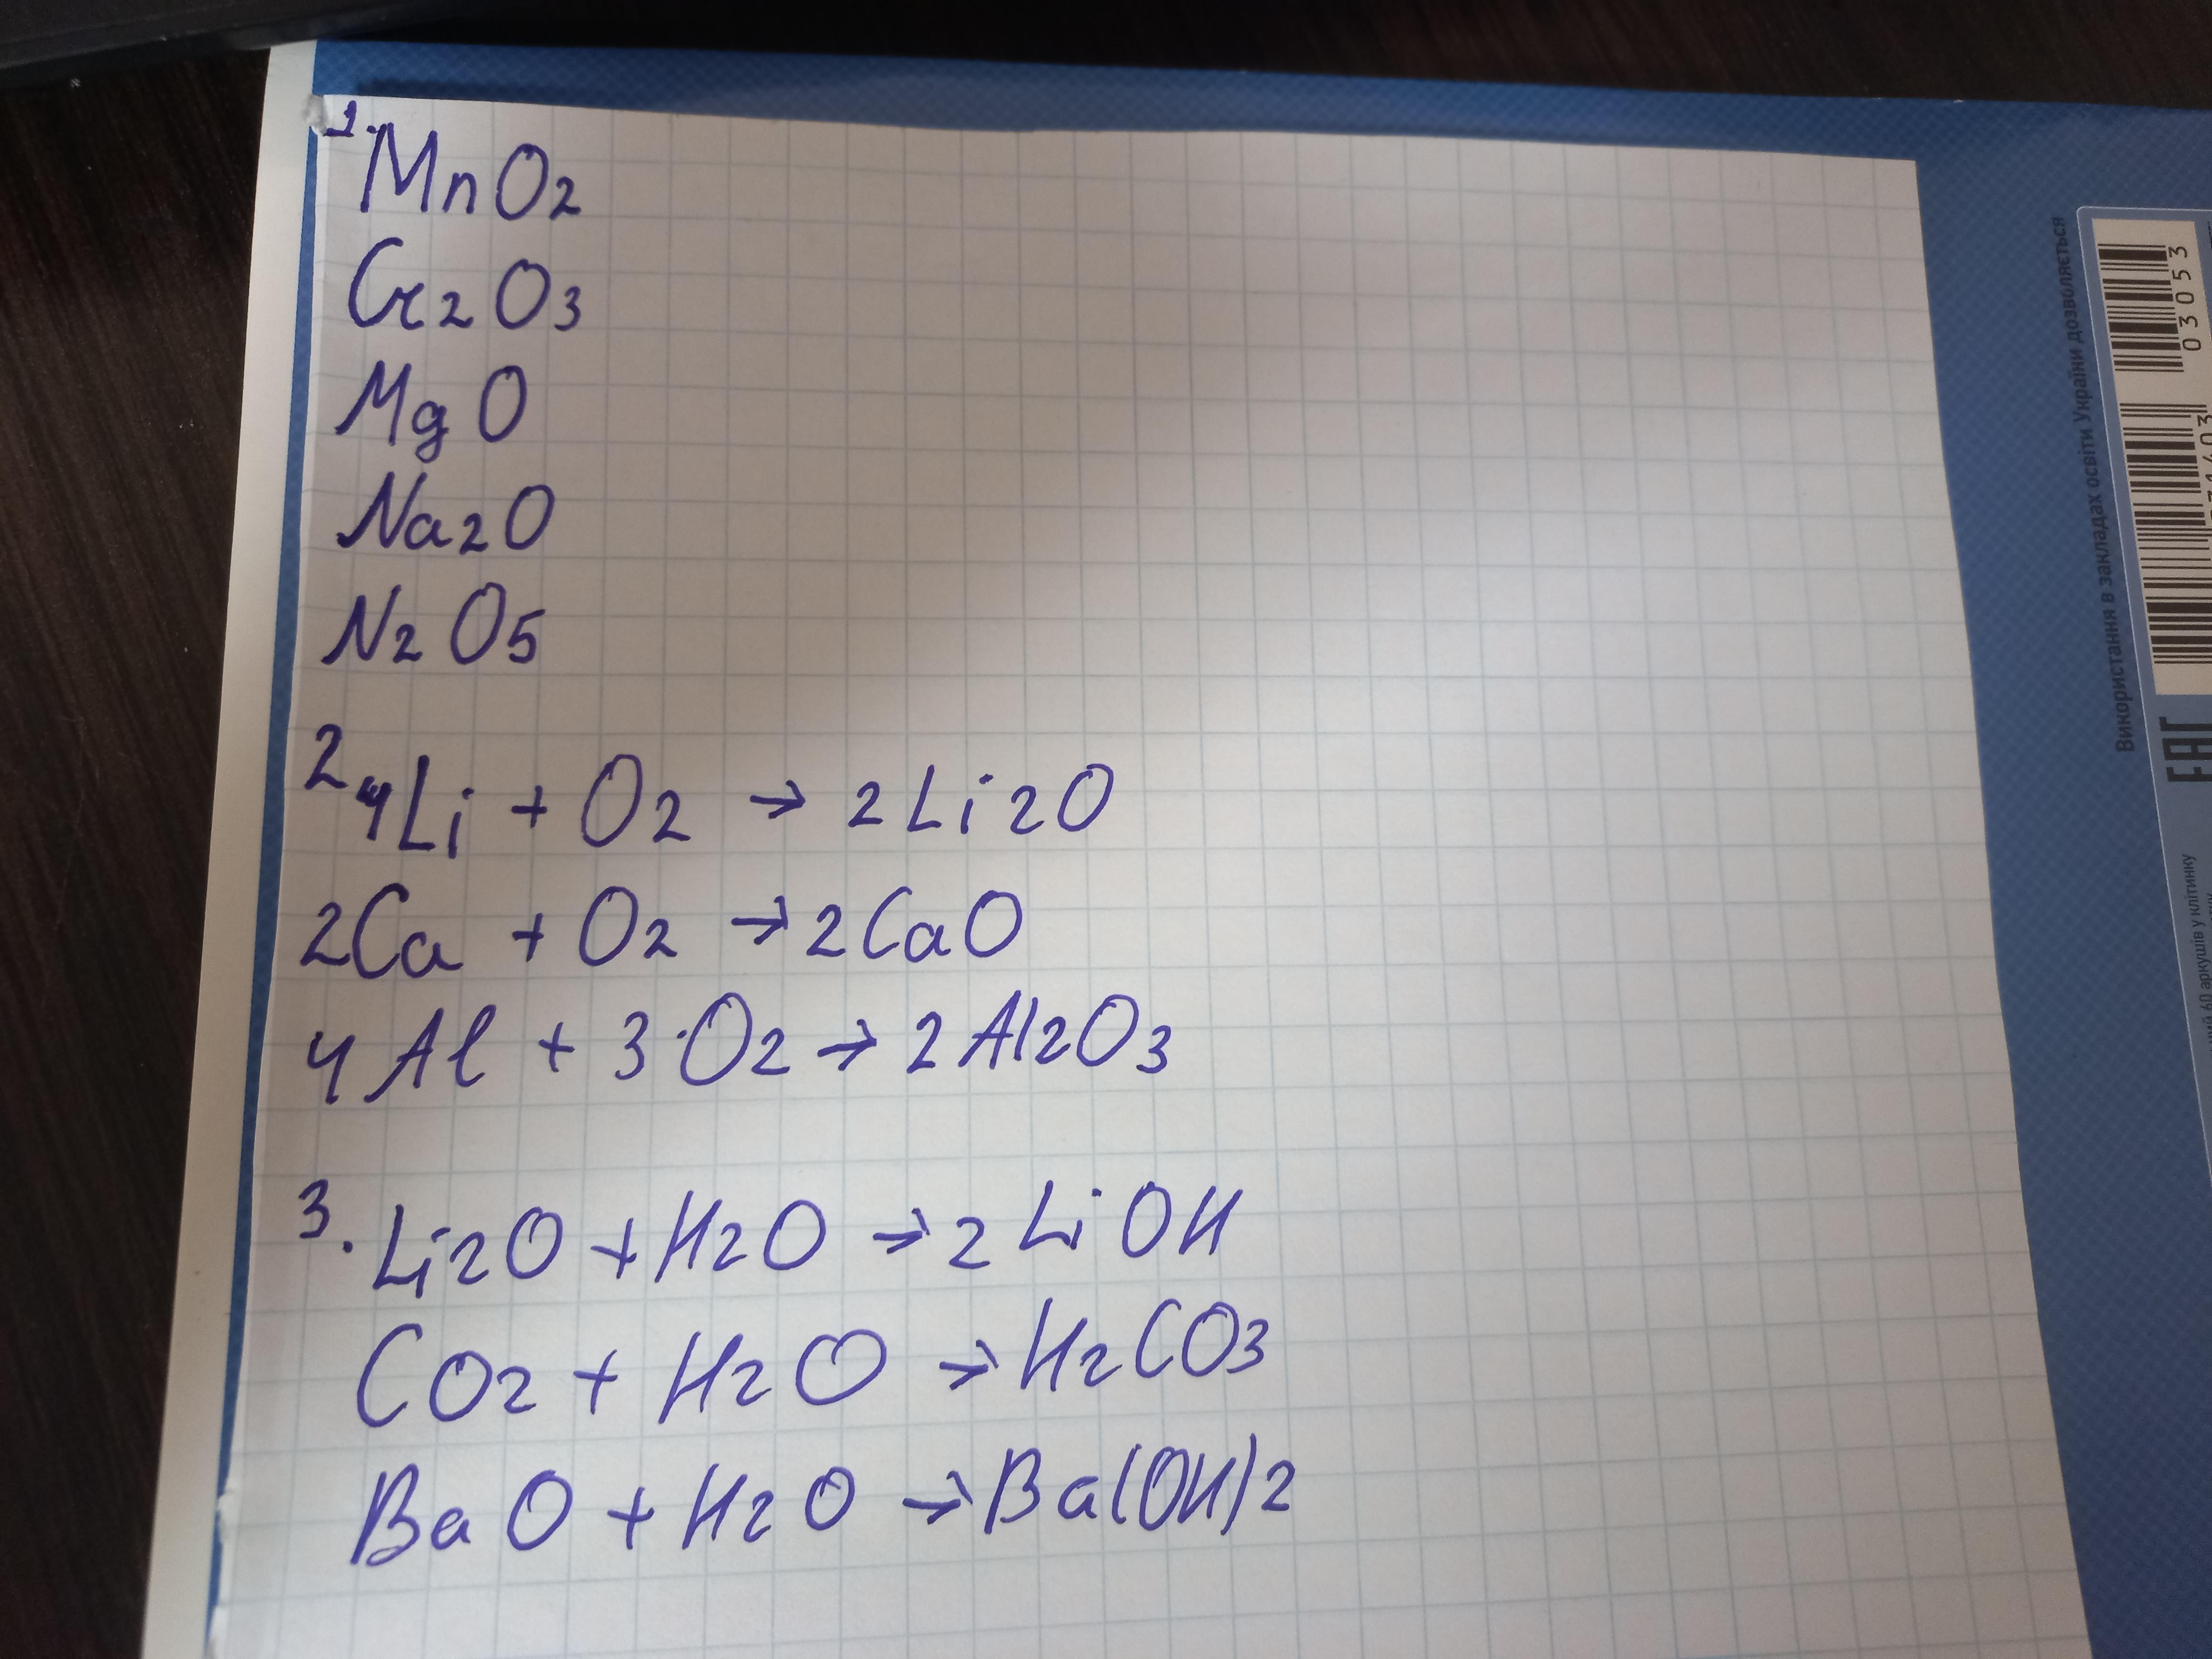 1.
MnO2
Cr2O3
MgO
Na2O
N2O5
2 4Li + O2 → 2Li2O
2Ca + O2 → 2CaO
4Al + 3·O2 → 2Al2O3
3. Li2O + H2O → 2LiOH
CO2 + H2O → H2CO3
BaO + H2O → Ba(OH)2
Використання в закладах освіти України дозволяється
03053
EAC
60 аркушів у клітинку